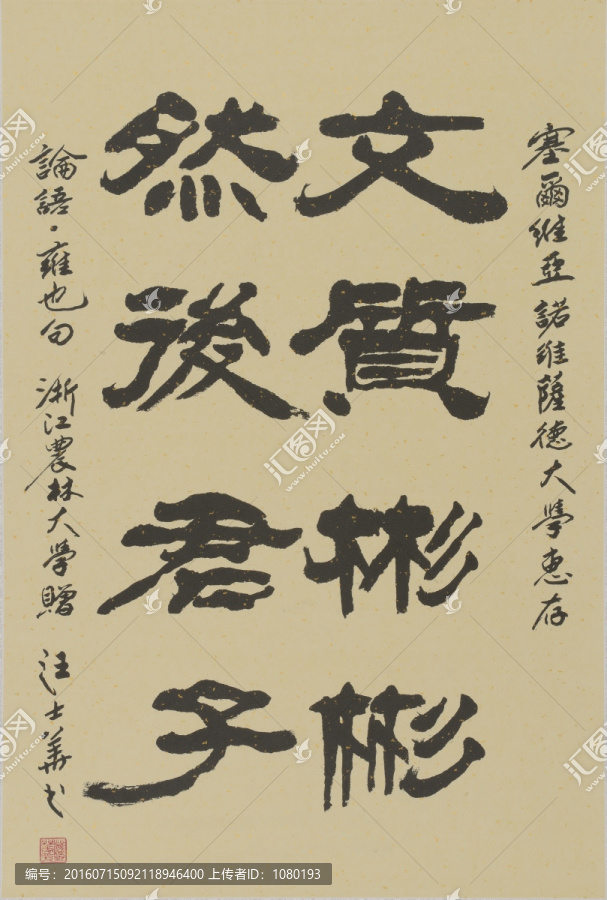 塞爾維亞諾維薩德大學惠存
文質彬彬
然後君子
論語·雍也句 浙江農林大學贈 汪士華书
编号：20160715092118946400 上传者ID：1080193
汇图网
www.huitu.com